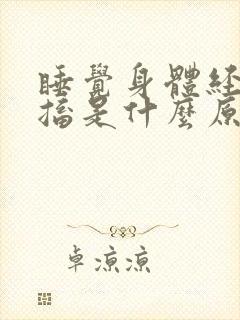 睡覺身體經
搐是什麼原
卓涼涼